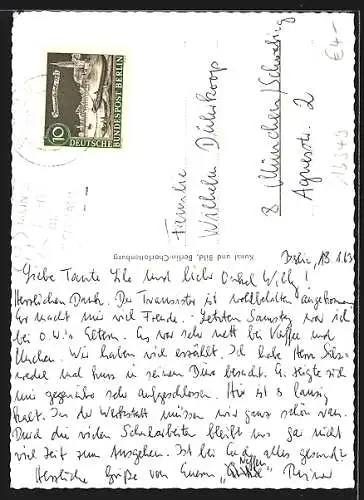 10
DEUTSCHE BUNDESPOST BERLIN
Familie
Wilhelm Dührkoop
8 München/Schwabing
Agnesstr. 2
€4-
Kunst und Bild, Berlin-Charlottenburg
Berlin, 18.1.63
Liebe Tante Lilo und lieber Onkel Willy!
Herzlichen Dank. Der Transistor ist wohlbehalten angekommen.
Er macht mir viel Freude. Letzten Samstag war ich
bei O.W.'s Eltern. Es war sehr nett bei Kaffee und
Kuchen. Wir haben viel erzählt. Ich habe Herrn
mal kurz in seinem Büro besucht. Er zeigte sich
mir gegenüber sehr aufgeschlossen. Hier ist es lausig
kalt. In der Werkstatt müssen wir ganz schön ran.
Durch die vielen Schularbeiten bleibt uns gar nicht
viel Zeit zum Ausgehen. Ist bei Euch alles gesund?
Herzliche Grüße von Eurem Neffen Reiner